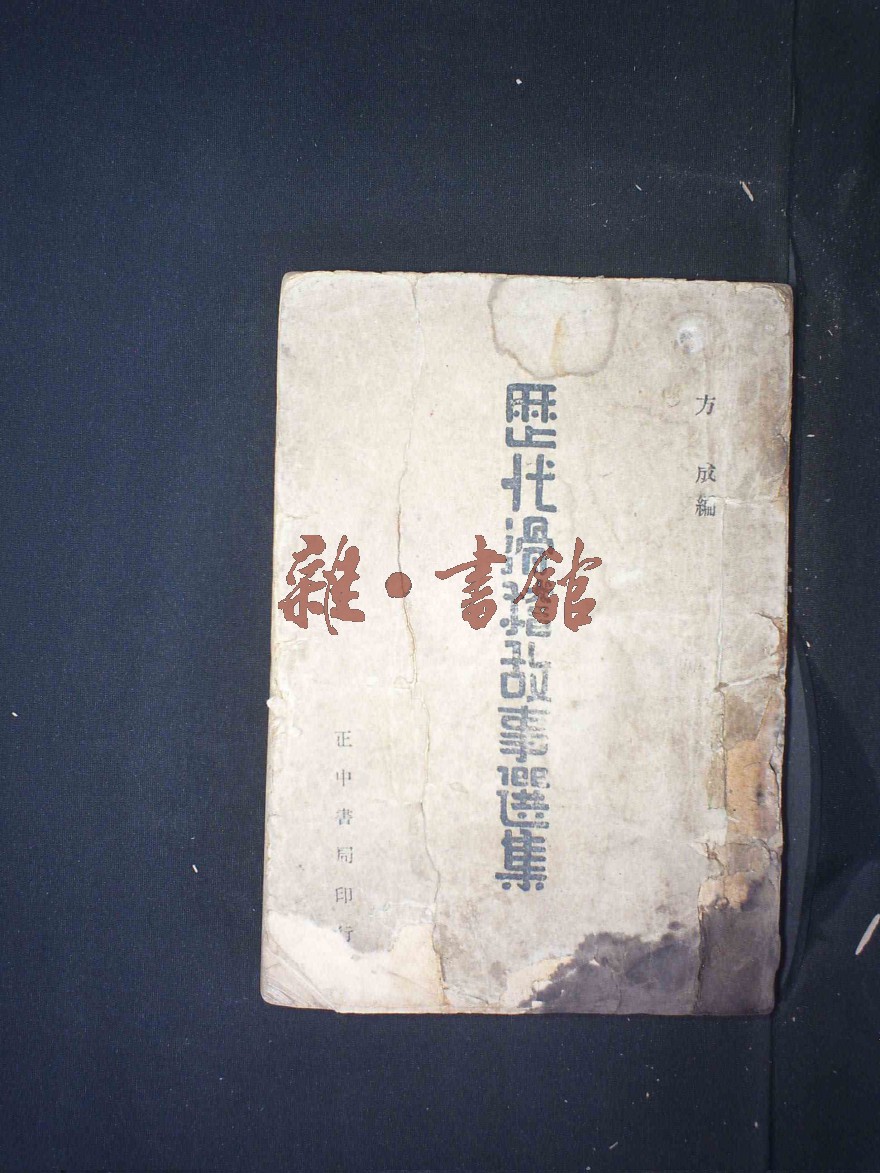 方成編
歷代滑稽故事選集
正中書局印行
雜·書館